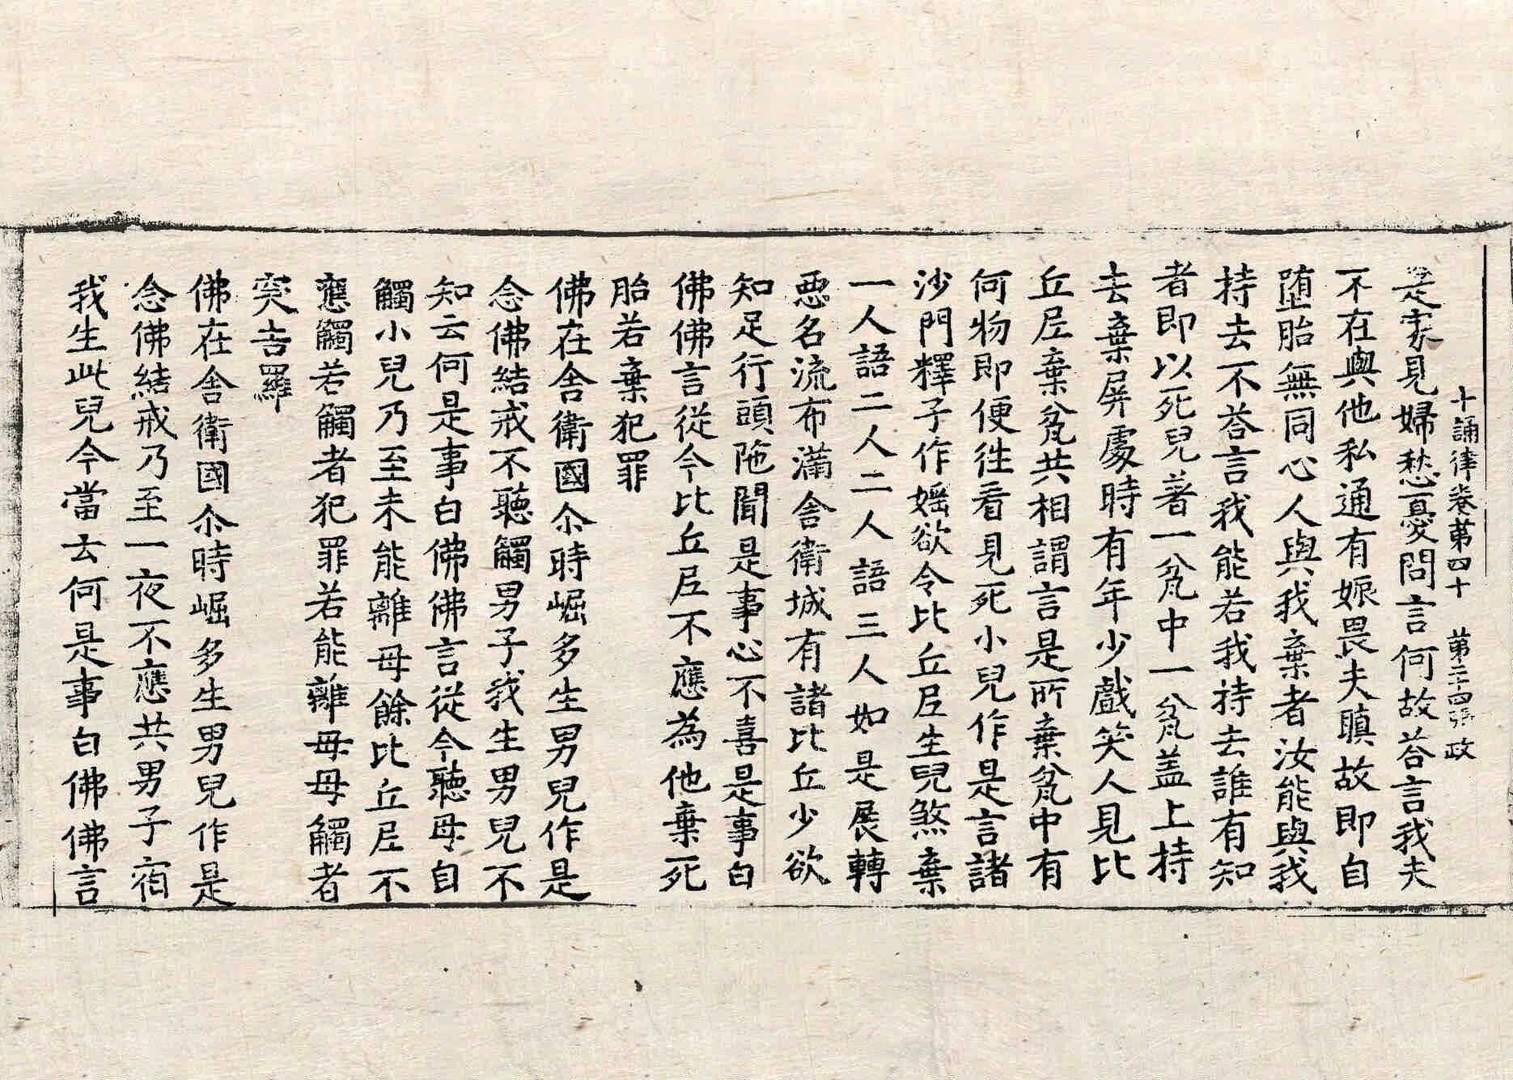 十誦律卷第四十 第三十四張 政
是家見婦愁憂問言何故荅言我夫
不在與他私通有娠畏夫瞋故即自
堕胎無同心人與我棄者汝能與我
持去不荅言我能若我持去誰有知
者即以死兒著一瓫中一瓫盖上持
去棄屏處時有年少戲笑人見比
丘尼棄瓫共相謂言是所棄瓫中有
何物即便徃看見死小兒作是言諸
沙門釋子作婬欲令比丘尼生兒煞棄
一人語二人二人語三人如是展轉
惡名流布滿舍衛城有諸比丘少欲
知足行頭陁聞是事心不喜是事白
佛佛言從今比丘尼不應為他棄死
胎若棄犯罪
佛在舍衛國尒時崛多生男兒作是
念佛結戒不聽觸男子我生男兒不
知云何是事白佛佛言從今聽母自
觸小兒乃至未能離母餘比丘尼不
應觸若觸者犯罪若能離母母觸者
突吉羅
佛在舍衛國尒時崛多生男兒作是
念佛結戒乃至一夜不應共男子宿
我生此兒今當云何是事白佛佛言